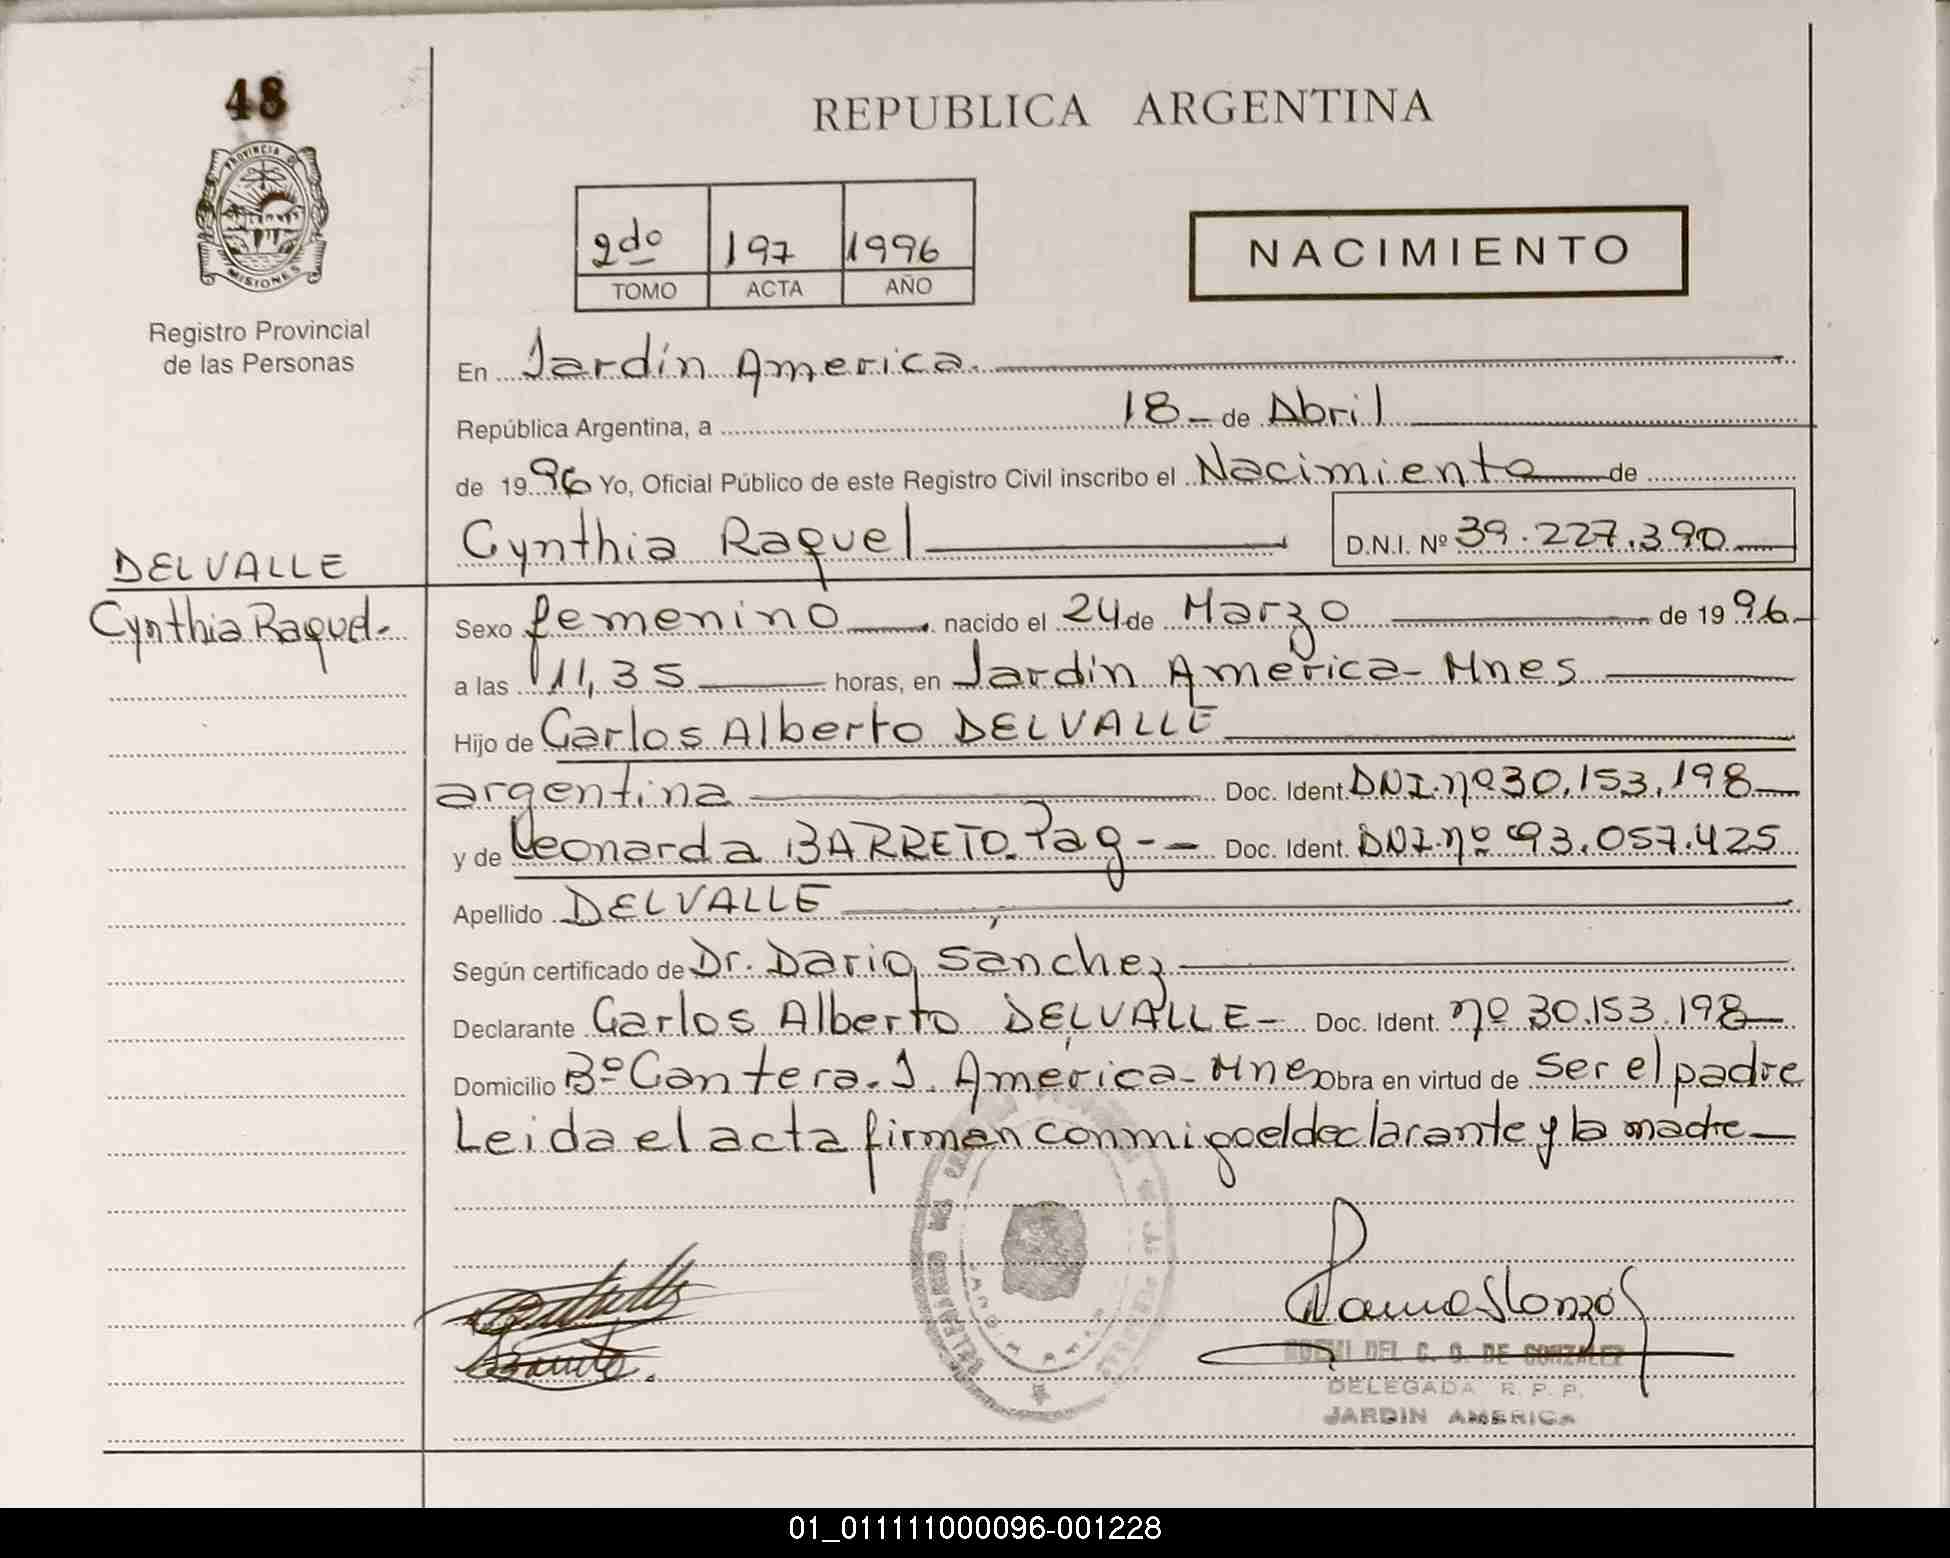 48
PROVINCIA DE
MISIONES
Registro Provincial
de las Personas
DELVALLE
Cynthia Raquel.
REPUBLICA ARGENTINA
2do 197 1996
TOMO ACTA AÑO
NACIMIENTO
En Jardín America.
República Argentina, a 18 de Abril
de 1996 Yo, Oficial Público de este Registro Civil inscribo el Nacimiento de
Cynthia Raquel D.N.I. Nº 39.227.390
Sexo femenino nacido el 24 de Marzo de 1996
a las 11,35 horas, en Jardín América - Mnes
Hijo de Carlos Alberto DELVALLE
argentina Doc. Ident. DNI. nº 30.153.198
y de Leonarda BARRETO. Pag - - Doc. Ident. DNI. nº 93.057.425
Apellido DELVALLE
Según certificado de Dr. Darío Sánchez
Declarante Carlos Alberto DELVALLE - Doc. Ident. nº 30.153.198
Domicilio Bº Cantera. J. América - Mnes Obra en virtud de ser el padre
Leida el acta firman conmigo el declarante y la madre
NOEMI DEL C. G. DE GONZALEZ
DELEGADA R. P. P.
JARDIN AMERICA
01_011111000096-001228